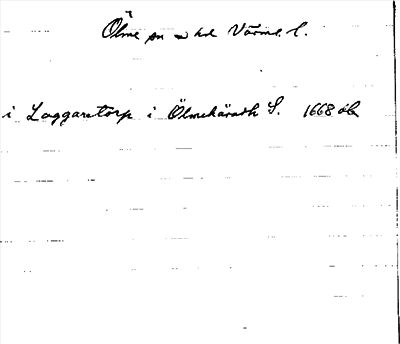 Ölme sn o hd Värml l.
i Laggaretorp i Ölmehäradh S. 1668 ÖB